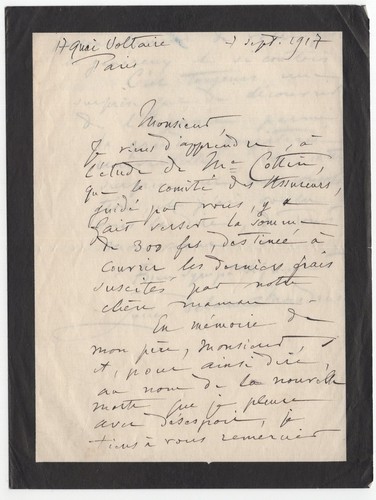 17 Quai Voltaire
Paris
sept. 1917
Monsieur
Je viens d'apprendre, à
l'étude de Me Cottin,
que le comité des Assureurs,
guidé par vous, y a
fait verser la somme
de 300 frs, destinée à
couvrir les derniers frais
suscités par notre
chère maman.
En mémoire de
mon père, Monsieur,
et, pour ainsi dire,
au nom de la nouvelle
morte que je pleure
avec désespoir, je
tiens à vous remercier